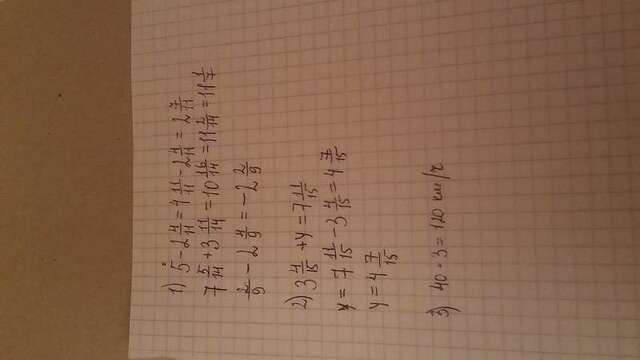 1) 5 - 2 4/11 = 4 11/11 - 2 4/11 = 2 7/11
7 5/14 + 3 11/14 = 10 16/14 = 11 2/14 = 11 1/7
2/9 - 2 4/9 = -2 2/9
2) 3 4/15 + y = 7 11/15
y = 7 11/15 - 3 4/15 = 4 7/15
y = 4 7/15
3) 40 · 3 = 120 км/ч